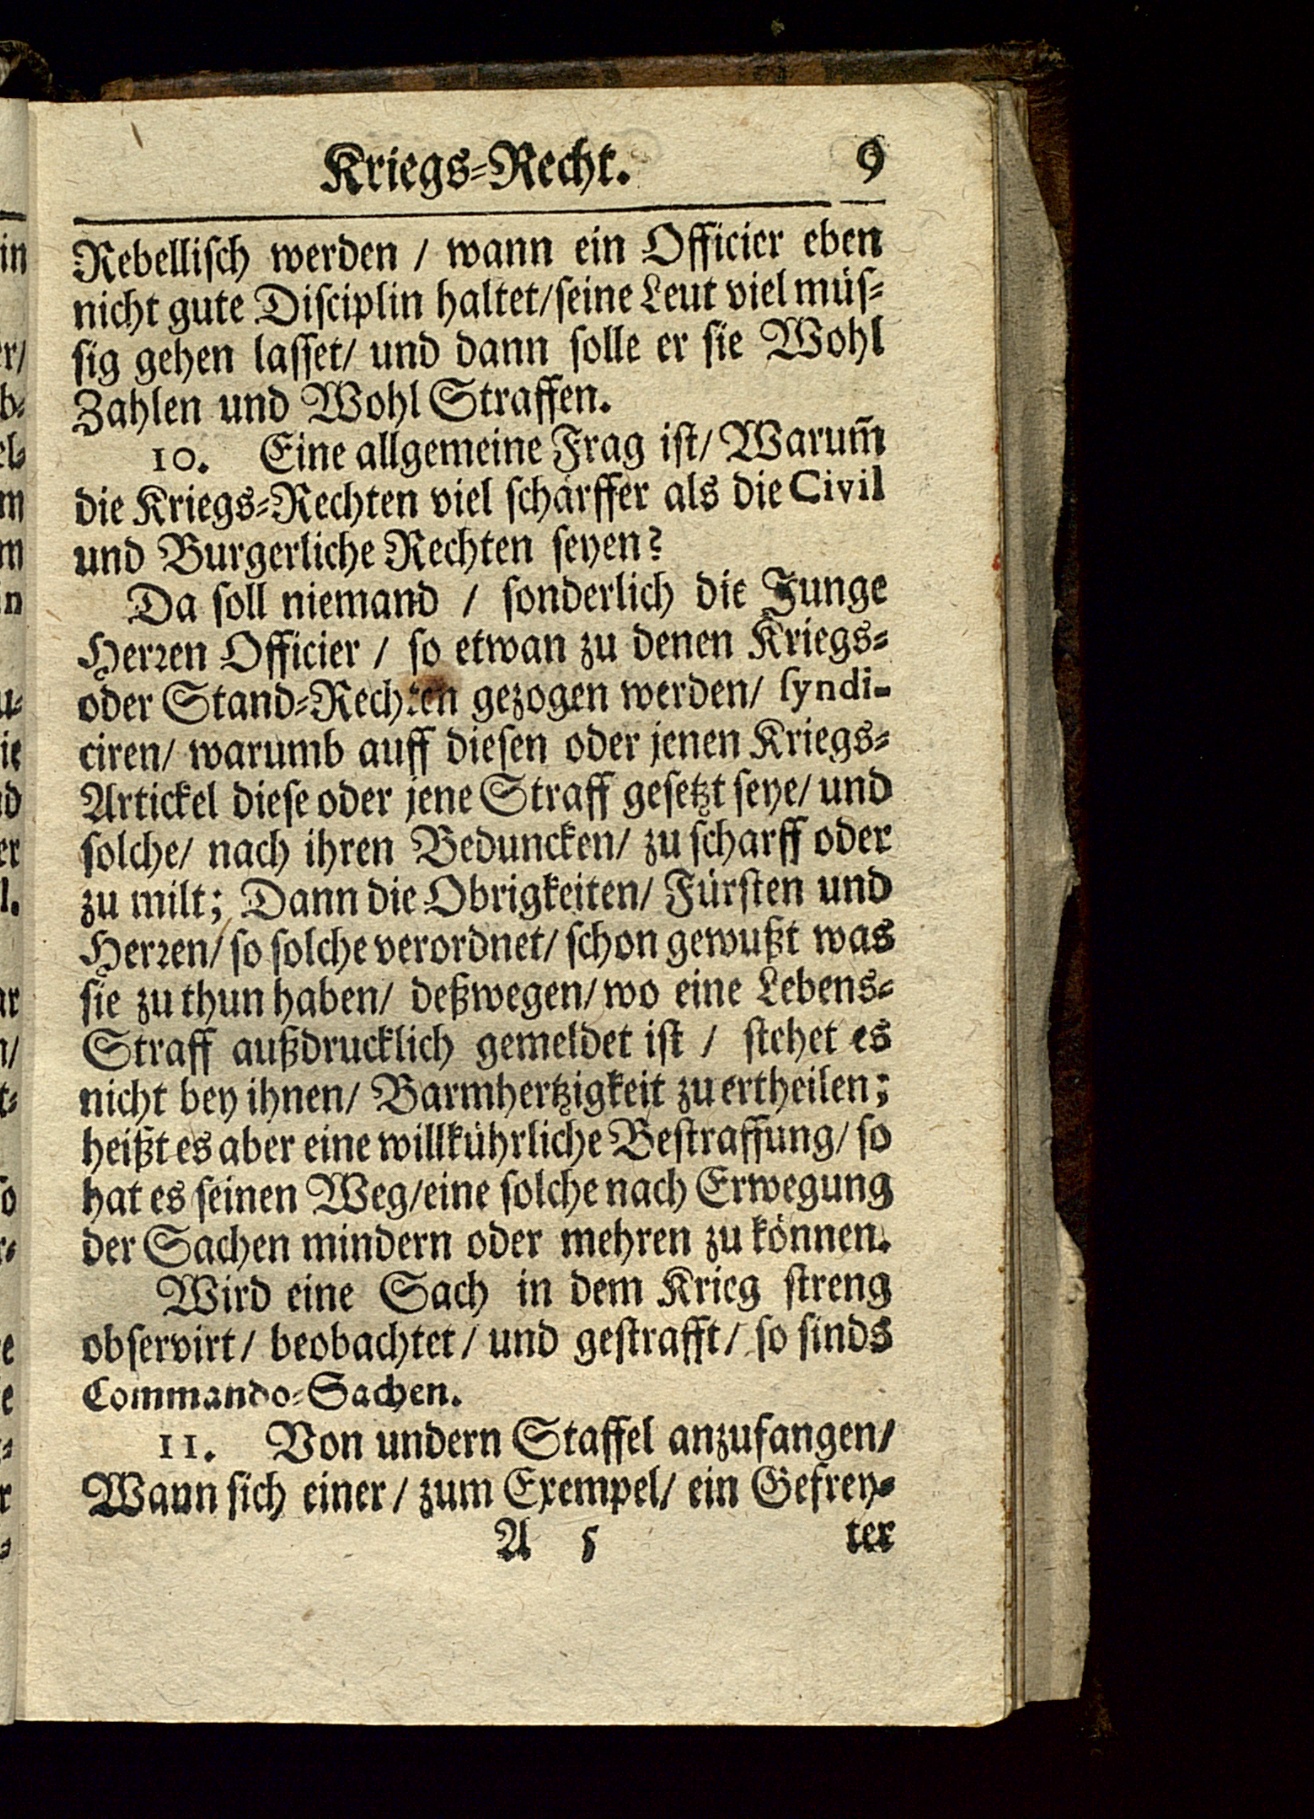 Kriegs-Recht. 9
Rebellisch werden / wann ein Officier eben
nicht gute Disciplin haltet/seine Leut viel müs-
sig gehen lasset/ und dann solle er sie Wohl
Zahlen und Wohl Straffen.
10. Eine allgemeine Frag ist/ Warum̃
die Kriegs-Rechten viel schärffer als die Civil
und Burgerliche Rechten seyen?
Da soll niemand / sonderlich die Junge
Herren Officier / so etwan zu denen Kriegs-
oder Stand-Rechten gezogen werden/ syndi-
ciren/ warumb auff diesen oder jenen Kriegs-
Artickel diese oder jene Straff gesetzt seye/ und
solche/ nach ihren Beduncken/ zu scharff oder
zu milt; Dann die Obrigkeiten/ Fürsten und
Herren/ so solche verordnet/ schon gewußt was
sie zu thun haben/ deßwegen/ wo eine Lebens-
Straff außdrucklich gemeldet ist / stehet es
nicht bey ihnen/ Barmhertzigkeit zu ertheilen;
heißt es aber eine willkührliche Bestraffung/ so
hat es seinen Weg/eine solche nach Erwegung
der Sachen mindern oder mehren zu können.
Wird eine Sach in dem Krieg streng
observirt / beobachtet / und gestrafft / so sinds
Commando-Sachen.
11. Von undern Staffel anzufangen/
Wann sich einer / zum Exempel/ ein Gefrey-
A 5 ter